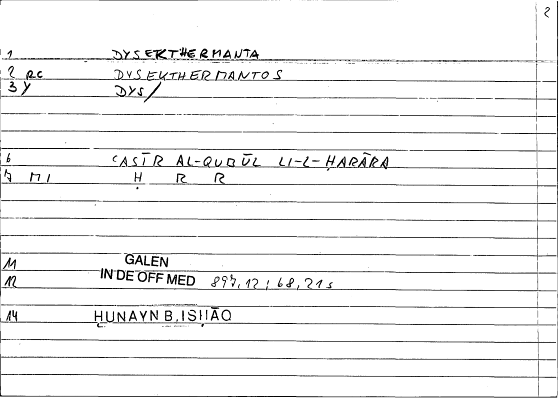 2
1 DYSEKTHERMANTA
2 RC DYSEKTHERMANTOS
3 Y DYS/
6 ʿASĪR AL-QUBŪL LI-L-ḤARĀRA
7 MI Ḥ R R
11 GALEN
12 IN DE OFF MED 897,12 ; 68,21s
14 ḤUNAYN B. ISḤĀQ